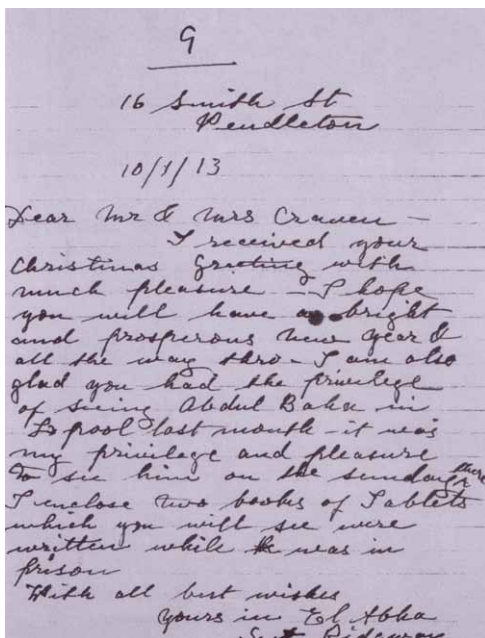 9
16 Smith St
Pendleton
10/1/13
Dear Mr & Mrs Craven -
I received your
Christmas Greeting with
much pleasure - I hope
you will have a bright
and prosperous new year &
all the way thro - I am also
glad you had the privilege
of seeing Abdul Baha in
L'pool last month - it was
my privilege and pleasure
to see him on the Sunday there
I enclose two books of Tablets
which you will see were
written while he was in
prison
With all best wishes
Yours in El Abha
Ridgway